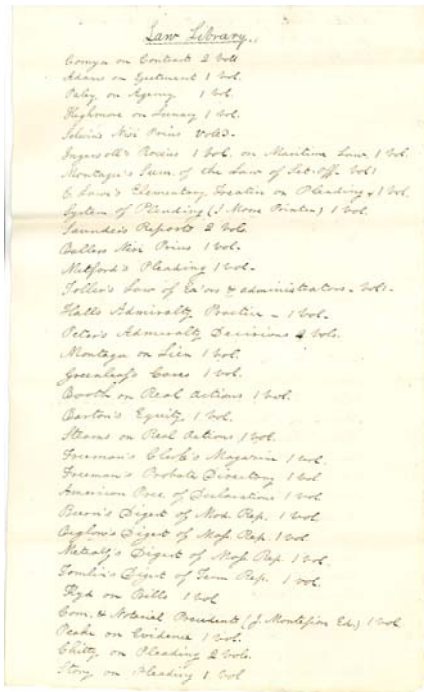 Law Library.
Comyn on Contract 2 Vols
Adams on Ejectment 1 Vol.
Paley on Agency 1 Vol.
Highmore on Lunacy 1 Vol.
Selwin's Nisi Prius Vol
Ingersoll's Roccus 1 Vol. on Maritime Law. 1 Vol.
Montagu's Sum. of the Law of Set-Off. Vol 1
E Lawe's Elementary Treatise on Pleading 1 Vol.
System of Pleading (J. Moore Printer) 1 Vol.
Saunders Reports 2 Vols.
Bullers Nisi Prius 1 Vol.
Mitford's Pleading 1 Vol.
Toller's Law of Ex'ors & administrators. Vol 1.
Halls Admiralty Practice - 1 Vol.
Peter's Admiralty Decisions 2 Vols.
Montagu on Lien 1 Vol.
Greenleaf's Cases 1 Vol.
Booth on Real Actions 1 Vol.
Barton's Equity 1 Vol.
Stearns on Real Actions 1 Vol.
Freeman's Clerk's Magazine 1 Vol.
Freeman's Probate Directory 1 Vol
American Prec. of Declarations 1 Vol
Digest of Mod. Rep. 1 Vol
Bigelow's Digest of Mass. Rep. 1 Vol
Metcalf's Digest of Mass Rep 1 Vol.
Tomlin's Digest of Term Rep. 1 Vol.
Kyd on Bills 1 Vol
Com. & Notarial Precedents (J. Montefiore Ed.) 1 Vol
Peake on Evidence 1 Vol.
Chitty on Pleading 2 Vols.
Story on Pleading 1 Vol